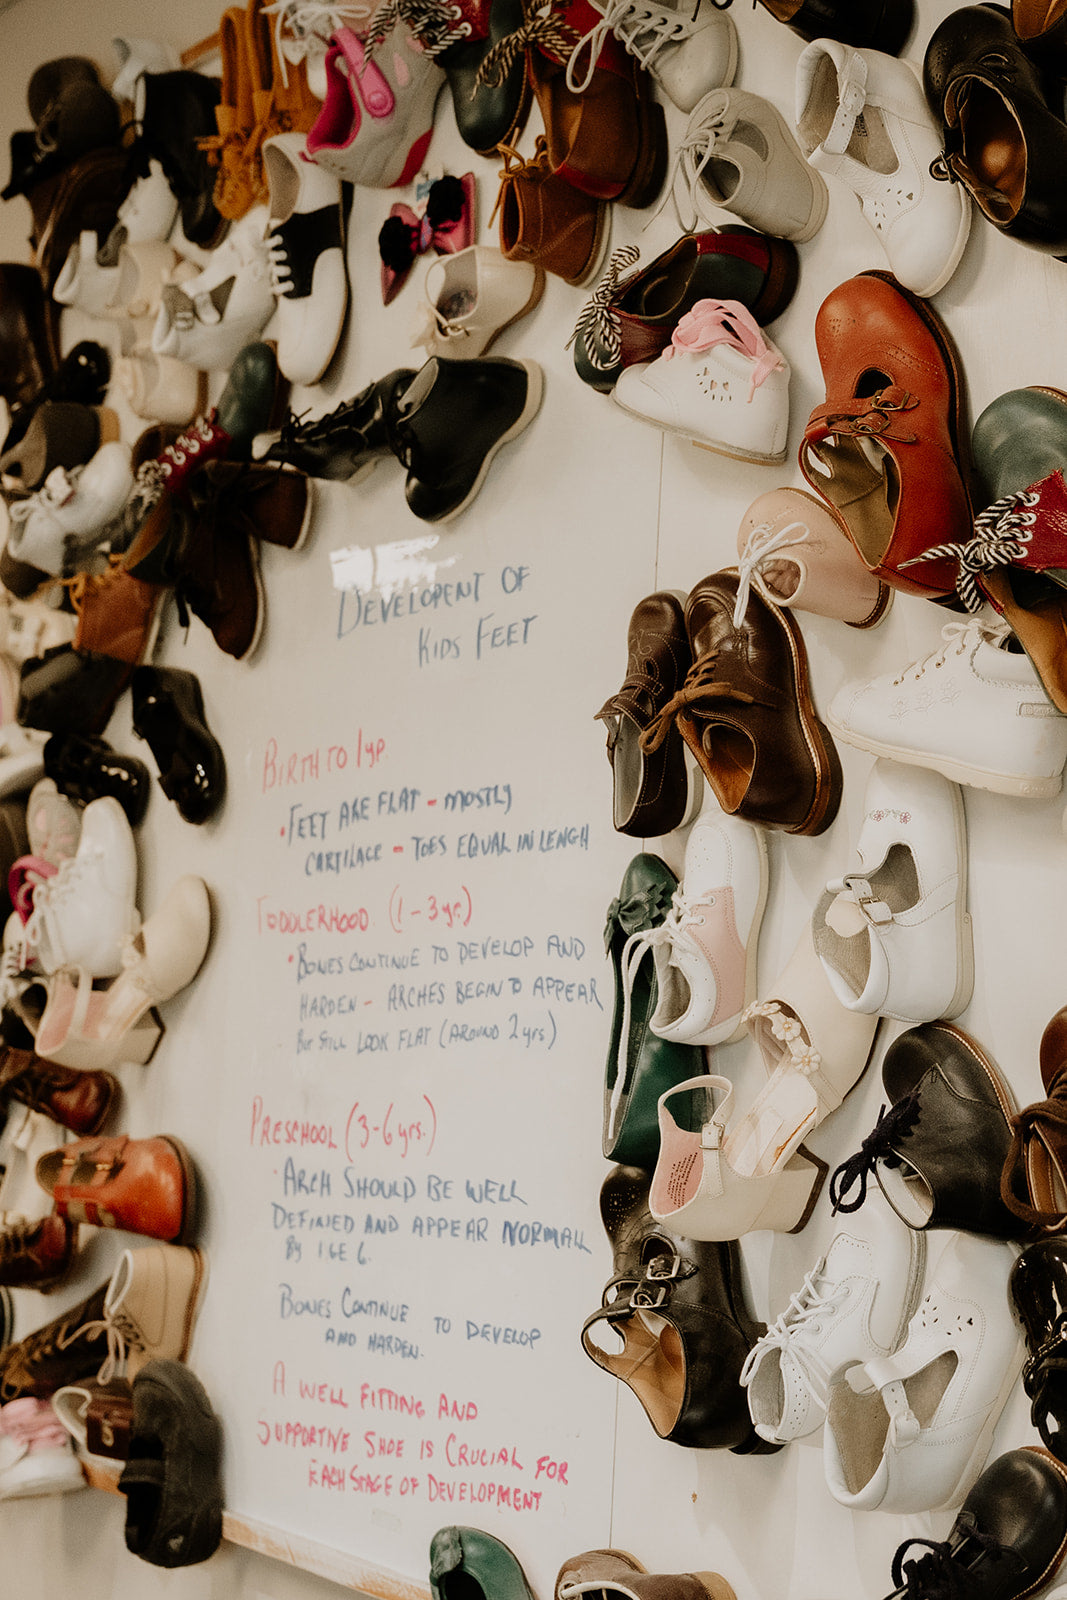 DEVELOPENT OF
KIDS FEET
BIRTH TO 1yr.
• FEET ARE FLAT - MOSTLY
CARTILAGE - TOES EQUAL IN LENGH
TODDLERHOOD (1-3yr.)
• BONES CONTINUE TO DEVELOP AND
HARDEN - ARCHES BEGIN TO APPEAR
BUT STILL LOOK FLAT (AROUND 2yrs)
PRESCHOOL (3-6yrs.)
• ARCH SHOULD BE WELL
DEFINED AND APPEAR NORMALL
BY AGE 6.
BONES CONTINUE TO DEVELOP
AND HARDEN.
A WELL FITTING AND
SUPPORTIVE SHOE IS CRUCIAL FOR
EACH STAGE OF DEVELOPMENT